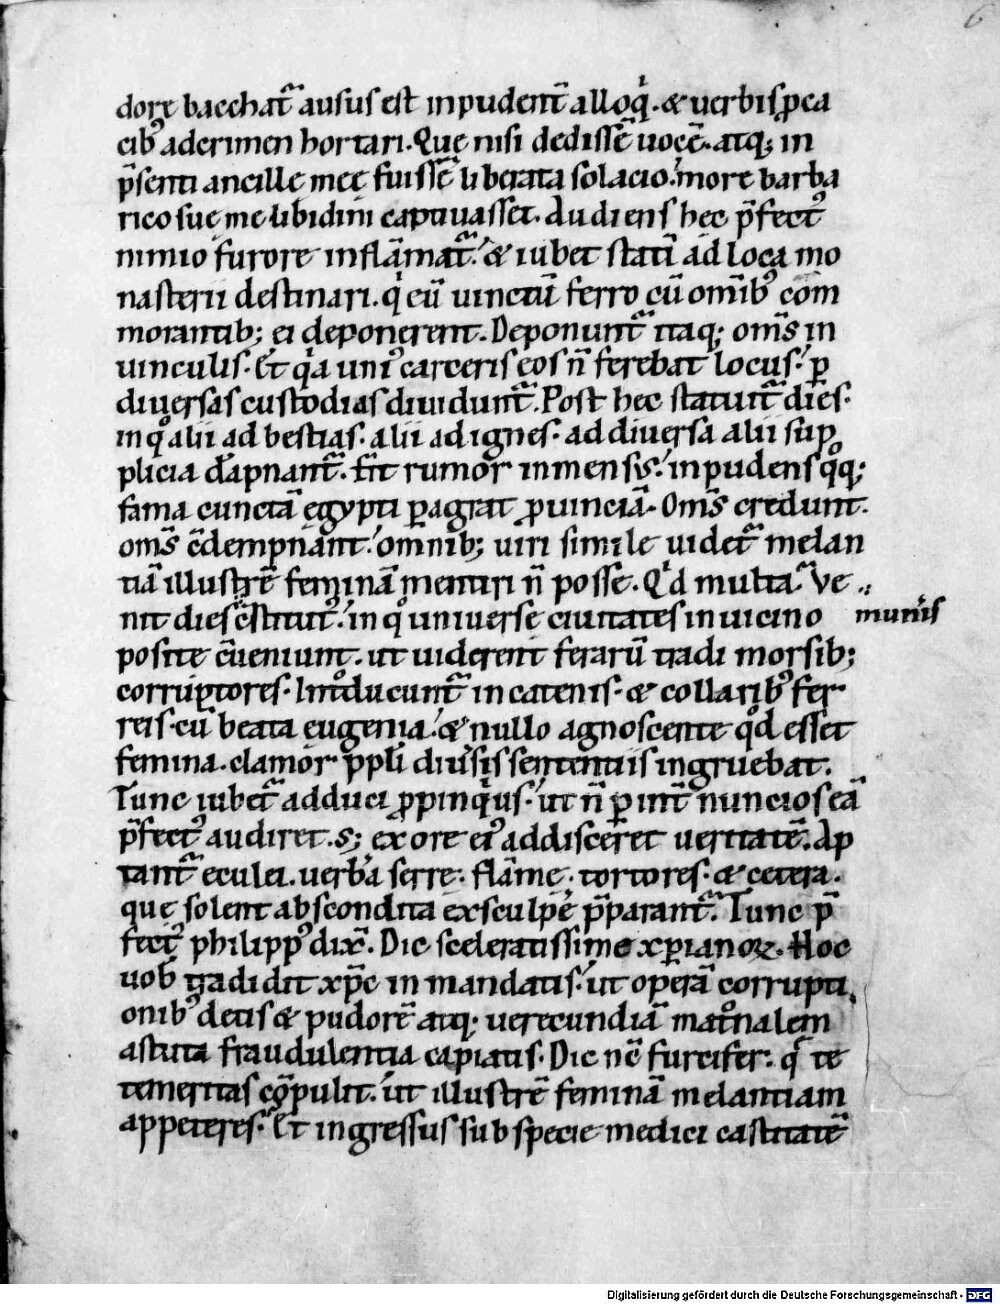 6
dore bacchat᷑ ausus est inpudent̄ alloqͥ. & uerbis ꝓca
cib᷒ ad crimen hortari. Quę nisi dedissē uocē. atq; in
p̄senti ancillę meę fuissē liberata solacio. more barba
rico suę me libidini captiuasset. Audiens hęc p̄fect᷒
nimio furore inflāmat᷑. & iubet statī ad loca mo
nasterii destinari. qͥ eū uinctū ferro cū om̄ib᷒ com
morantib; ei deponerent. Deponunt᷑ itaq; om̄s in
uinculis. Et qͥa uni᷒ carceris eos n̄ ferebat locus. ꝑ
diuersas custodias diuidunt᷑. Post hęc statuit᷑ dies.
in qͦ alii ad bestias. alii ad ignes. ad diuersa alii sup
plicia dāpnant᷑. fit rumor inmensis. inpudens qͦq;
fama cunctā egypti ꝑagrat ꝓuinciā. Om̄s credunt.
om̄s c̄dempnant. omnib; uiri simile uidet᷑ melan
tiā illustrē feminā mentiri n̄ posse. Qͥd multa. Ve
nit dies c̄stitut᷒. in qͦ uniuersę ciuitates in uicino munͥs
positę c̄ueniunt. ut uiderent ferarū tradi morsib;
corruptores. Intͦducunt᷑ in catenis. & collarib᷒ fer
reis. cū beata eugenia. & nullo agnoscente qͦd esset
femina. clamor ppłi diu̓sis sententiis ingruebat.
Tunc iubet᷑ adduci ꝓpinqͥus. ut n̄ ꝑ int̄nuncios eā
p̄fect᷒ audiret. s; ex ore ei᷒ addisceret ueritatē. Ap
tant᷑ eculei. uerb̓a. serre. flāmę. tortores. & cetera.
quę solent abscondita exsculpe᷑ p̄parant᷑. Tunc p̄
fect᷒ philipp᷒ dix̄. Dic sceleratissime xp̄ianoꝝ. Hoc
uob̄ tradidit xp̄c in mandatis. ut operā corrupti
onib᷒ detis & pudorē atq; uerecundiā matͦnalem
astuta fraudulentia capiatis. Dic nē furcifer. qͣ te
temeritas cōpulit. ut illustrē feminā melantiam
appeteres. Et ingressus sub specie medici castitatē
Digitalisierung gefördert durch die Deutsche Forschungsgemeinschaft - DFG